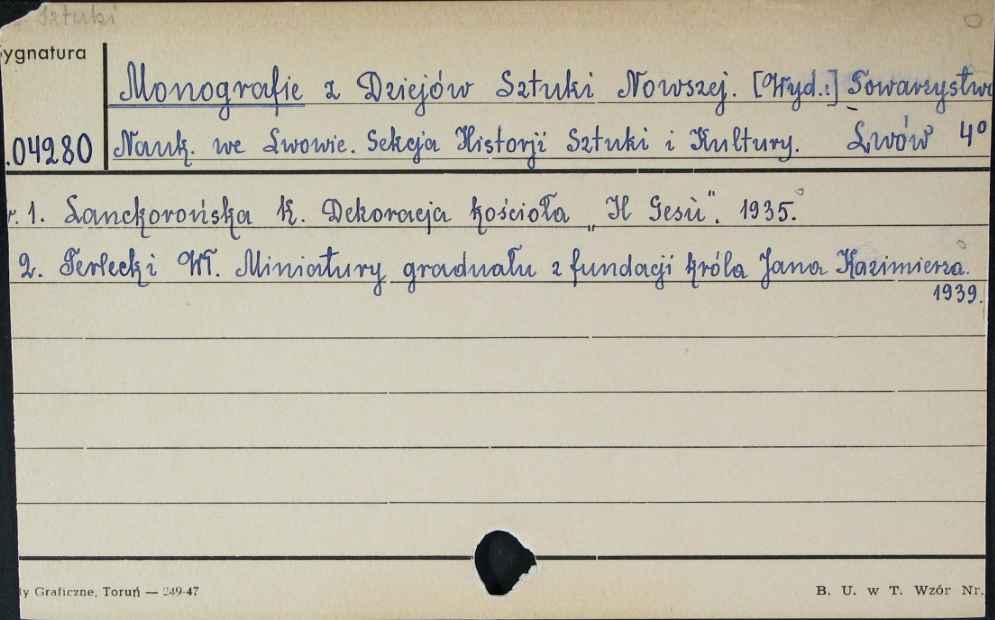 Sztuki
ygnatura
Monografie z Dziejów Sztuki Nowszej. [Wyd.:] Towarzystwo
.04280 Nauk. we Lwowie. Sekcja Historji Sztuki i Kultury. Lwów 4º
r. 1. Lanckorońska K. Dekoracja kościoła „Il Gesù". 1935.
2. Terlecki Wł. Miniatury graduału z fundacji króla Jana Kazimierza.
1939.
y Graficzne, Toruń — 249-47 B. U. w T. Wzór Nr.